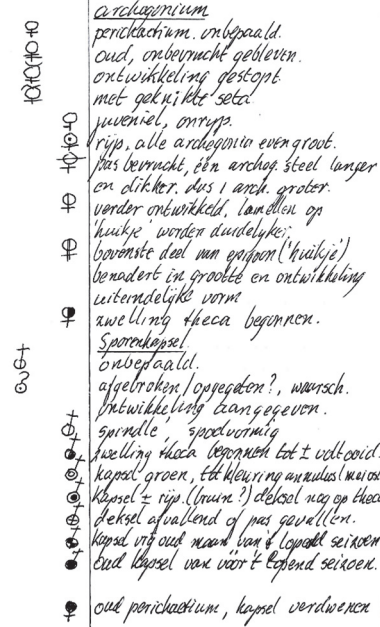 archegonium
perichaetium. onbepaald.
oud, onbevrucht gebleven.
ontwikkeling gestopt.
met geknikte seta.
juveniel, onrijp.
rijp, alle archegonia even groot.
pas bevrucht, één archeg. steel langer
en dikker, dus 1 arch. groter.
verder ontwikkeld, lamellen op
'huikje' worden duidelijker.
bovenste deel van epigoon ('huikje')
benadert in grootte en ontwikkeling
uiteindelijke vorm
zwelling theca begonnen.
Sporenkapsel
onbepaald.
afgebroken/opgegeten?, waarsch.
ontwikkeling aangegeven.
'spindle', spoelvormig
zwelling theca begonnen tot ± voltooid.
kapsel groen, tot kleuring annulus (meiose
kapsel ± rijp. (bruin?) deksel nog op theca
deksel afvallend of pas gevallen.
kapsel vrij oud maar van 't lopend seizoen
oud kapsel van vóór 't lopend seizoen.
oud perichaetium, kapsel verdwenen